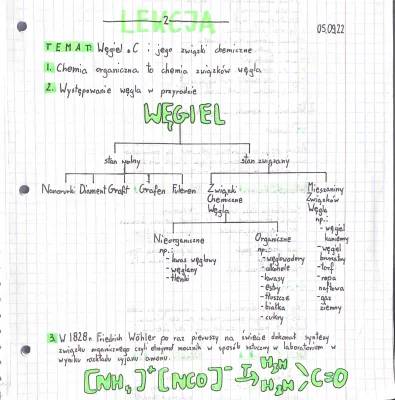 LEKCJA 2
05.09.22
TEMAT: Węgiel C i jego związki chemiczne
1. Chemia organiczna to chemia związków węgla
2. Występowanie węgla w przyrodzie
WĘGIEL
stan wolny
stan związany
Nanorurki Diament Grafit Grafen Fuleren
Związki
Chemiczne
Węgla
Mieszaniny
Związków
Węgla
np.:
- węgiel
kamienny
- węgiel
brunatny
- torf
- ropa
naftowa
- gaz
ziemny
Nieorganiczne
np.:
- kwas węglowy
- węglany
- tlenki
Organiczne
np.:
- węglowodory
- alkohole
- kwasy
- estry
- tłuszcze
- białka
- cukry
3. W 1828r. Friedrich Wöhler po raz pierwszy na świecie dokonał syntezy
związku organicznego czyli otrzymał mocznik w sposób sztuczny w laboratorium w
wyniku rozkładu cyjanianu amonu.
[NH₄]⁺[NCO]⁻ T→ H₂N H₂N >C=O